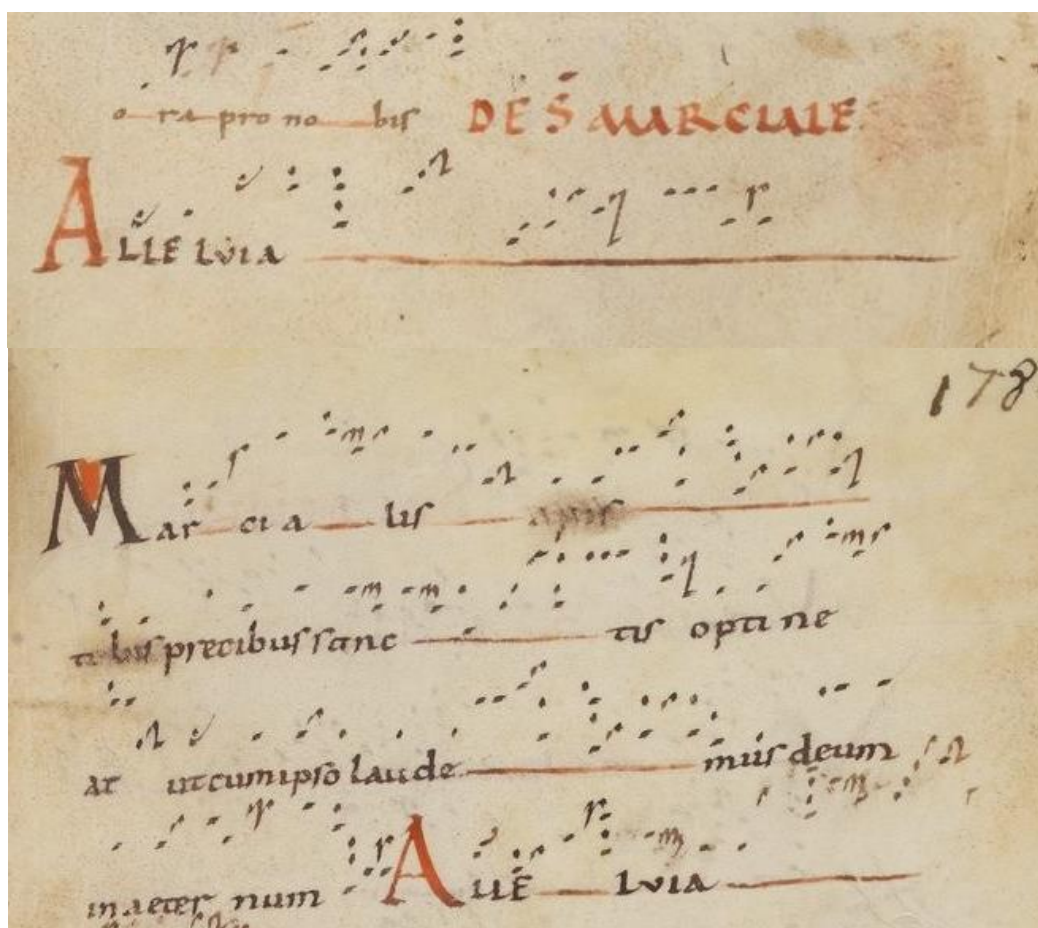 o ra pro no bis DE S MARCIALE
ALLE LVIA
178
Mar ci a lis apis
ti bus precibus sanc tis opti ne
at ut cum ipso laude mus deum
in aeter num ALLE LVIA